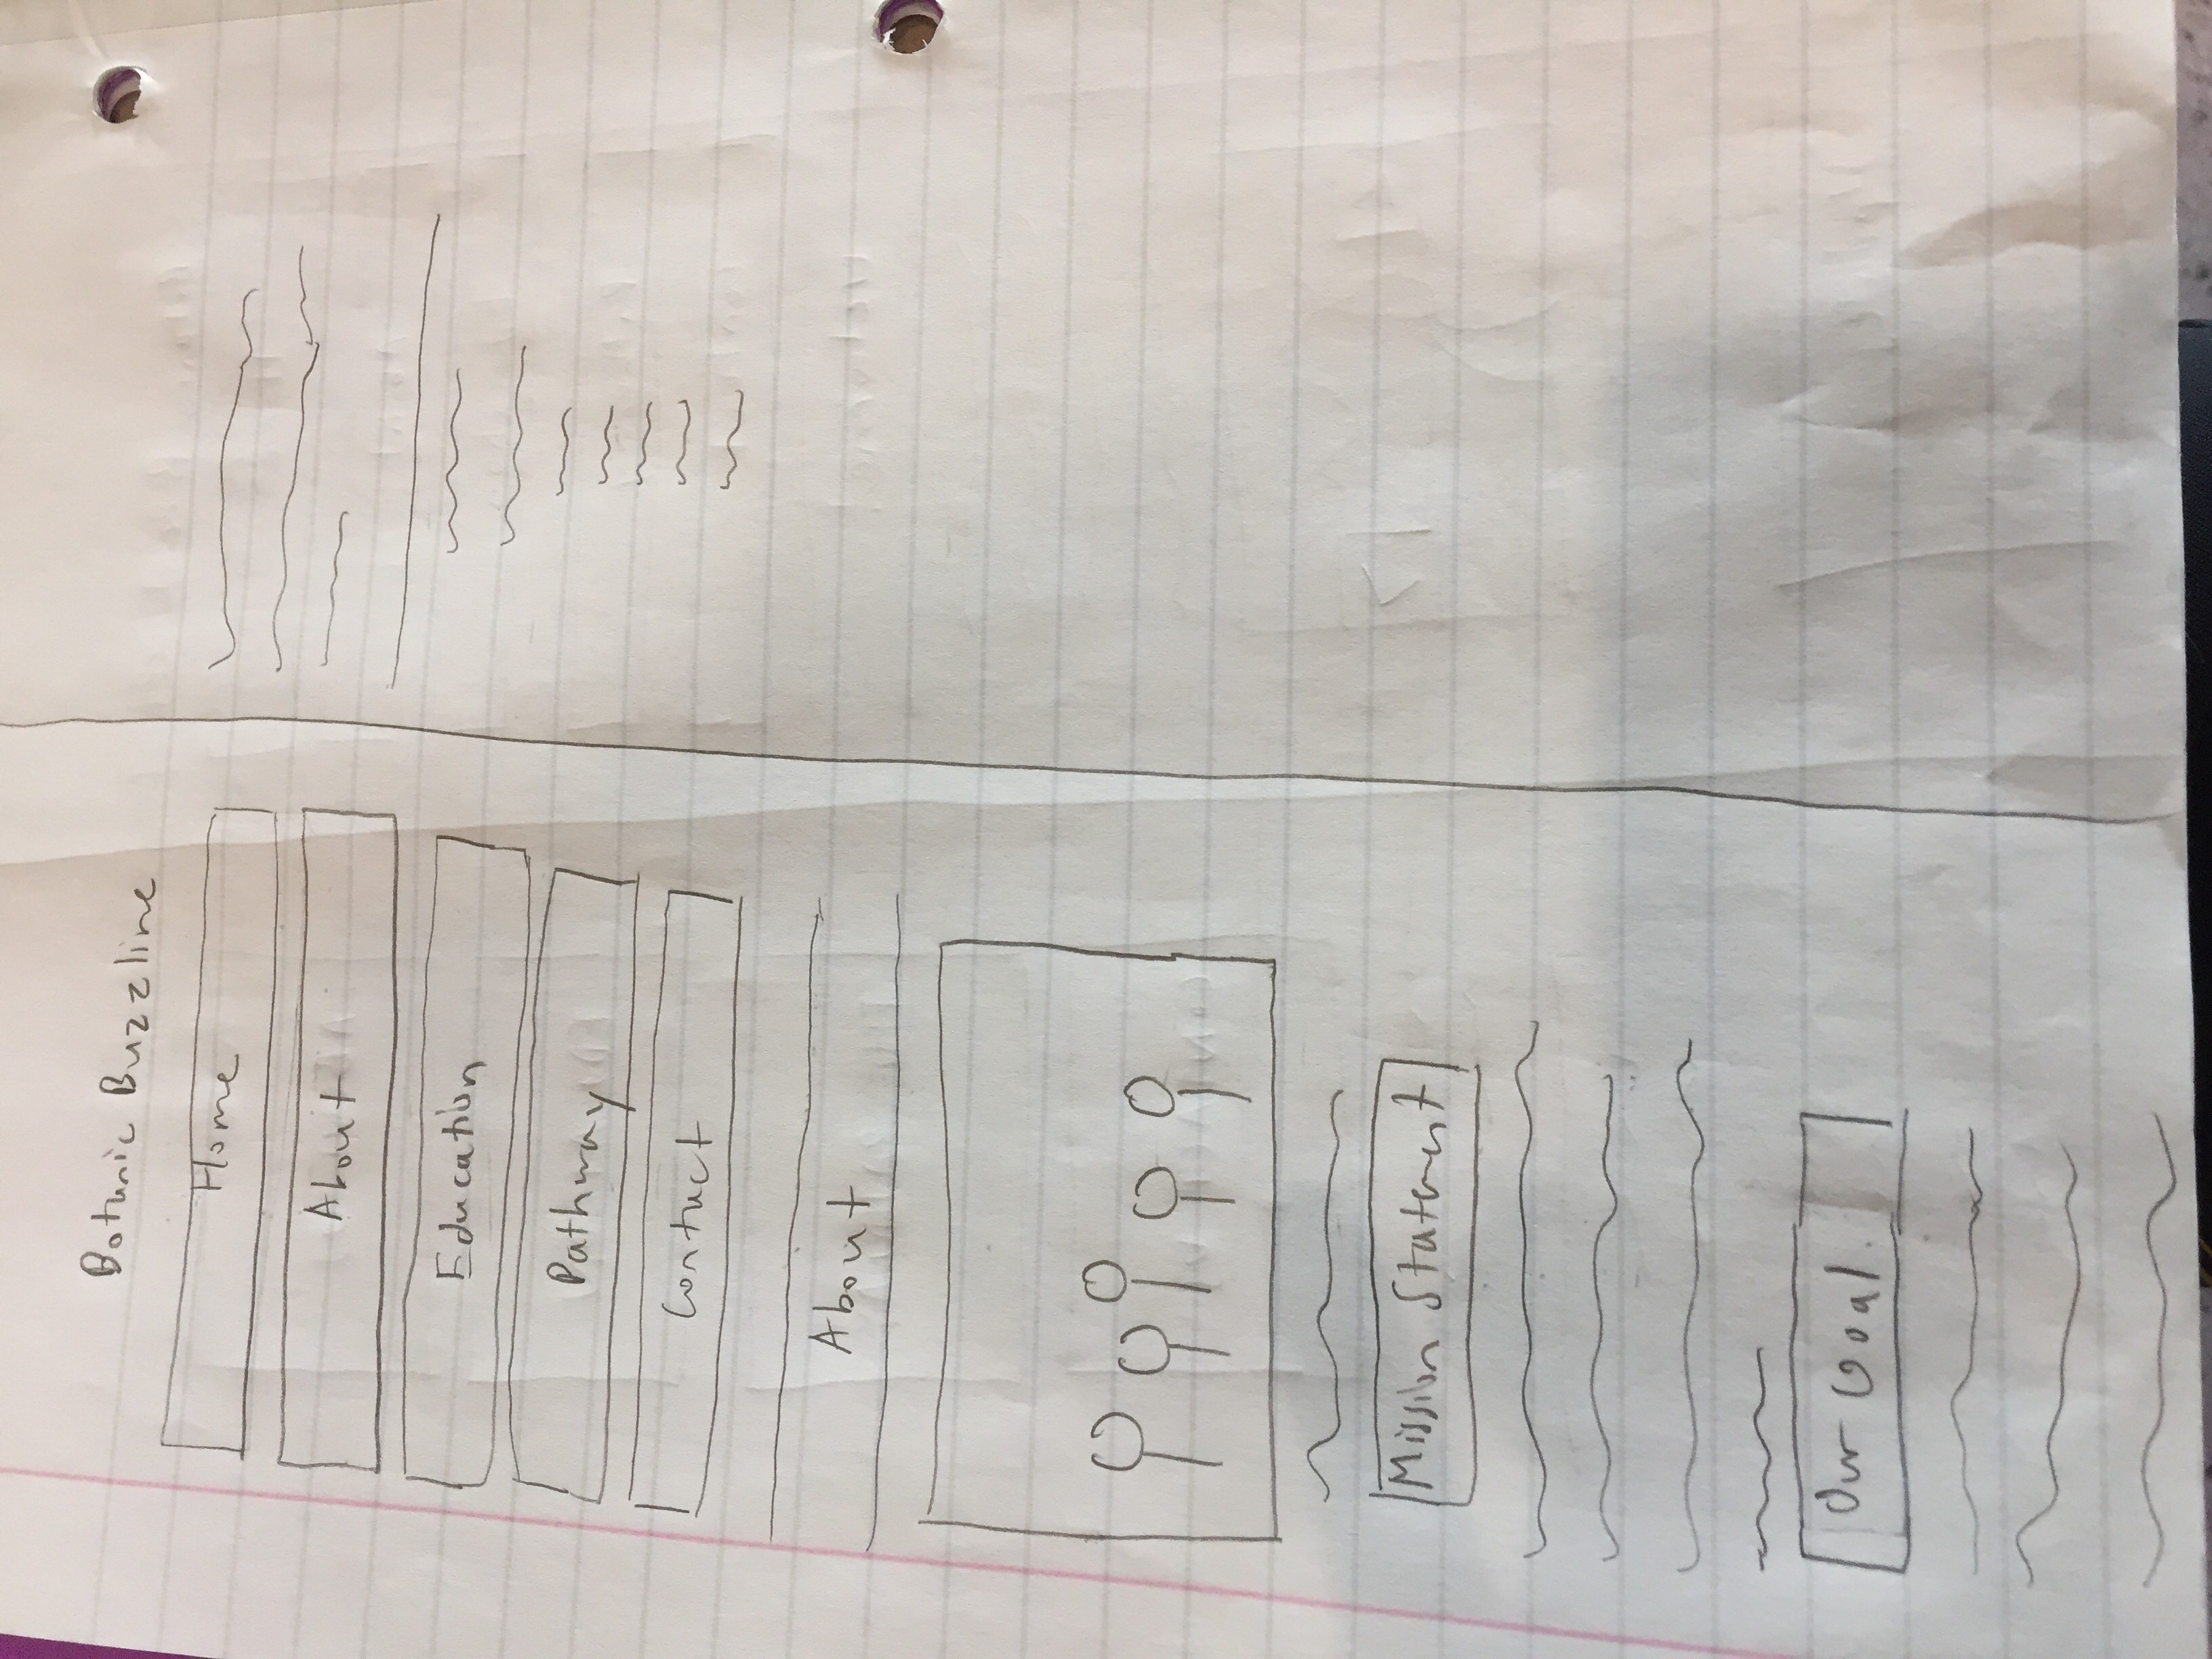 Botanic Buzzline
Home
About
Education
Pathway
Contact
About
Mission Statement
Our Goal